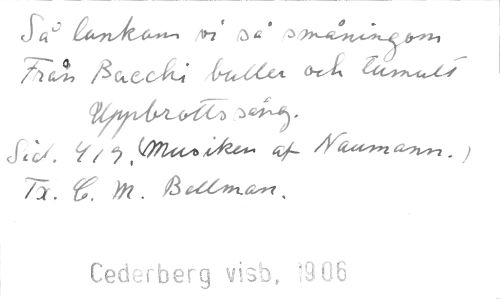 Så lunkom vi så småningom
Från Bacchi buller och tumult
Uppbrottssång.
Sid. 419. (Musiken af Naumann.)
Tx. C. M. Bellman.
Cederberg visb, 1906